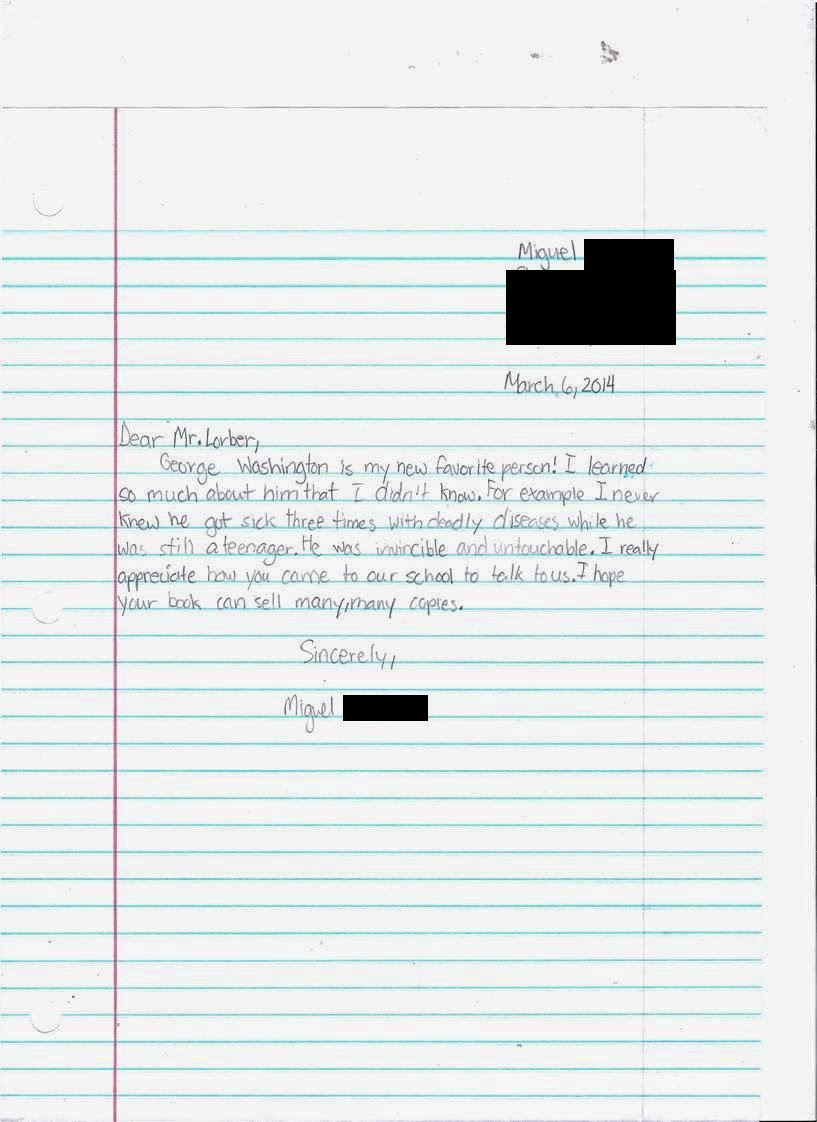 Miguel
March 6, 2014
Dear Mr. Lorber,
George Washington is my new favorite person! I learned
so much about him that I didn't know. For example I never
knew he got sick three times with deadly diseases while he
was still a teenager. He was invincible and untouchable. I really
appreciate how you came to our school to talk to us. I hope
your book can sell many, many copies.
Sincerely,
Miguel